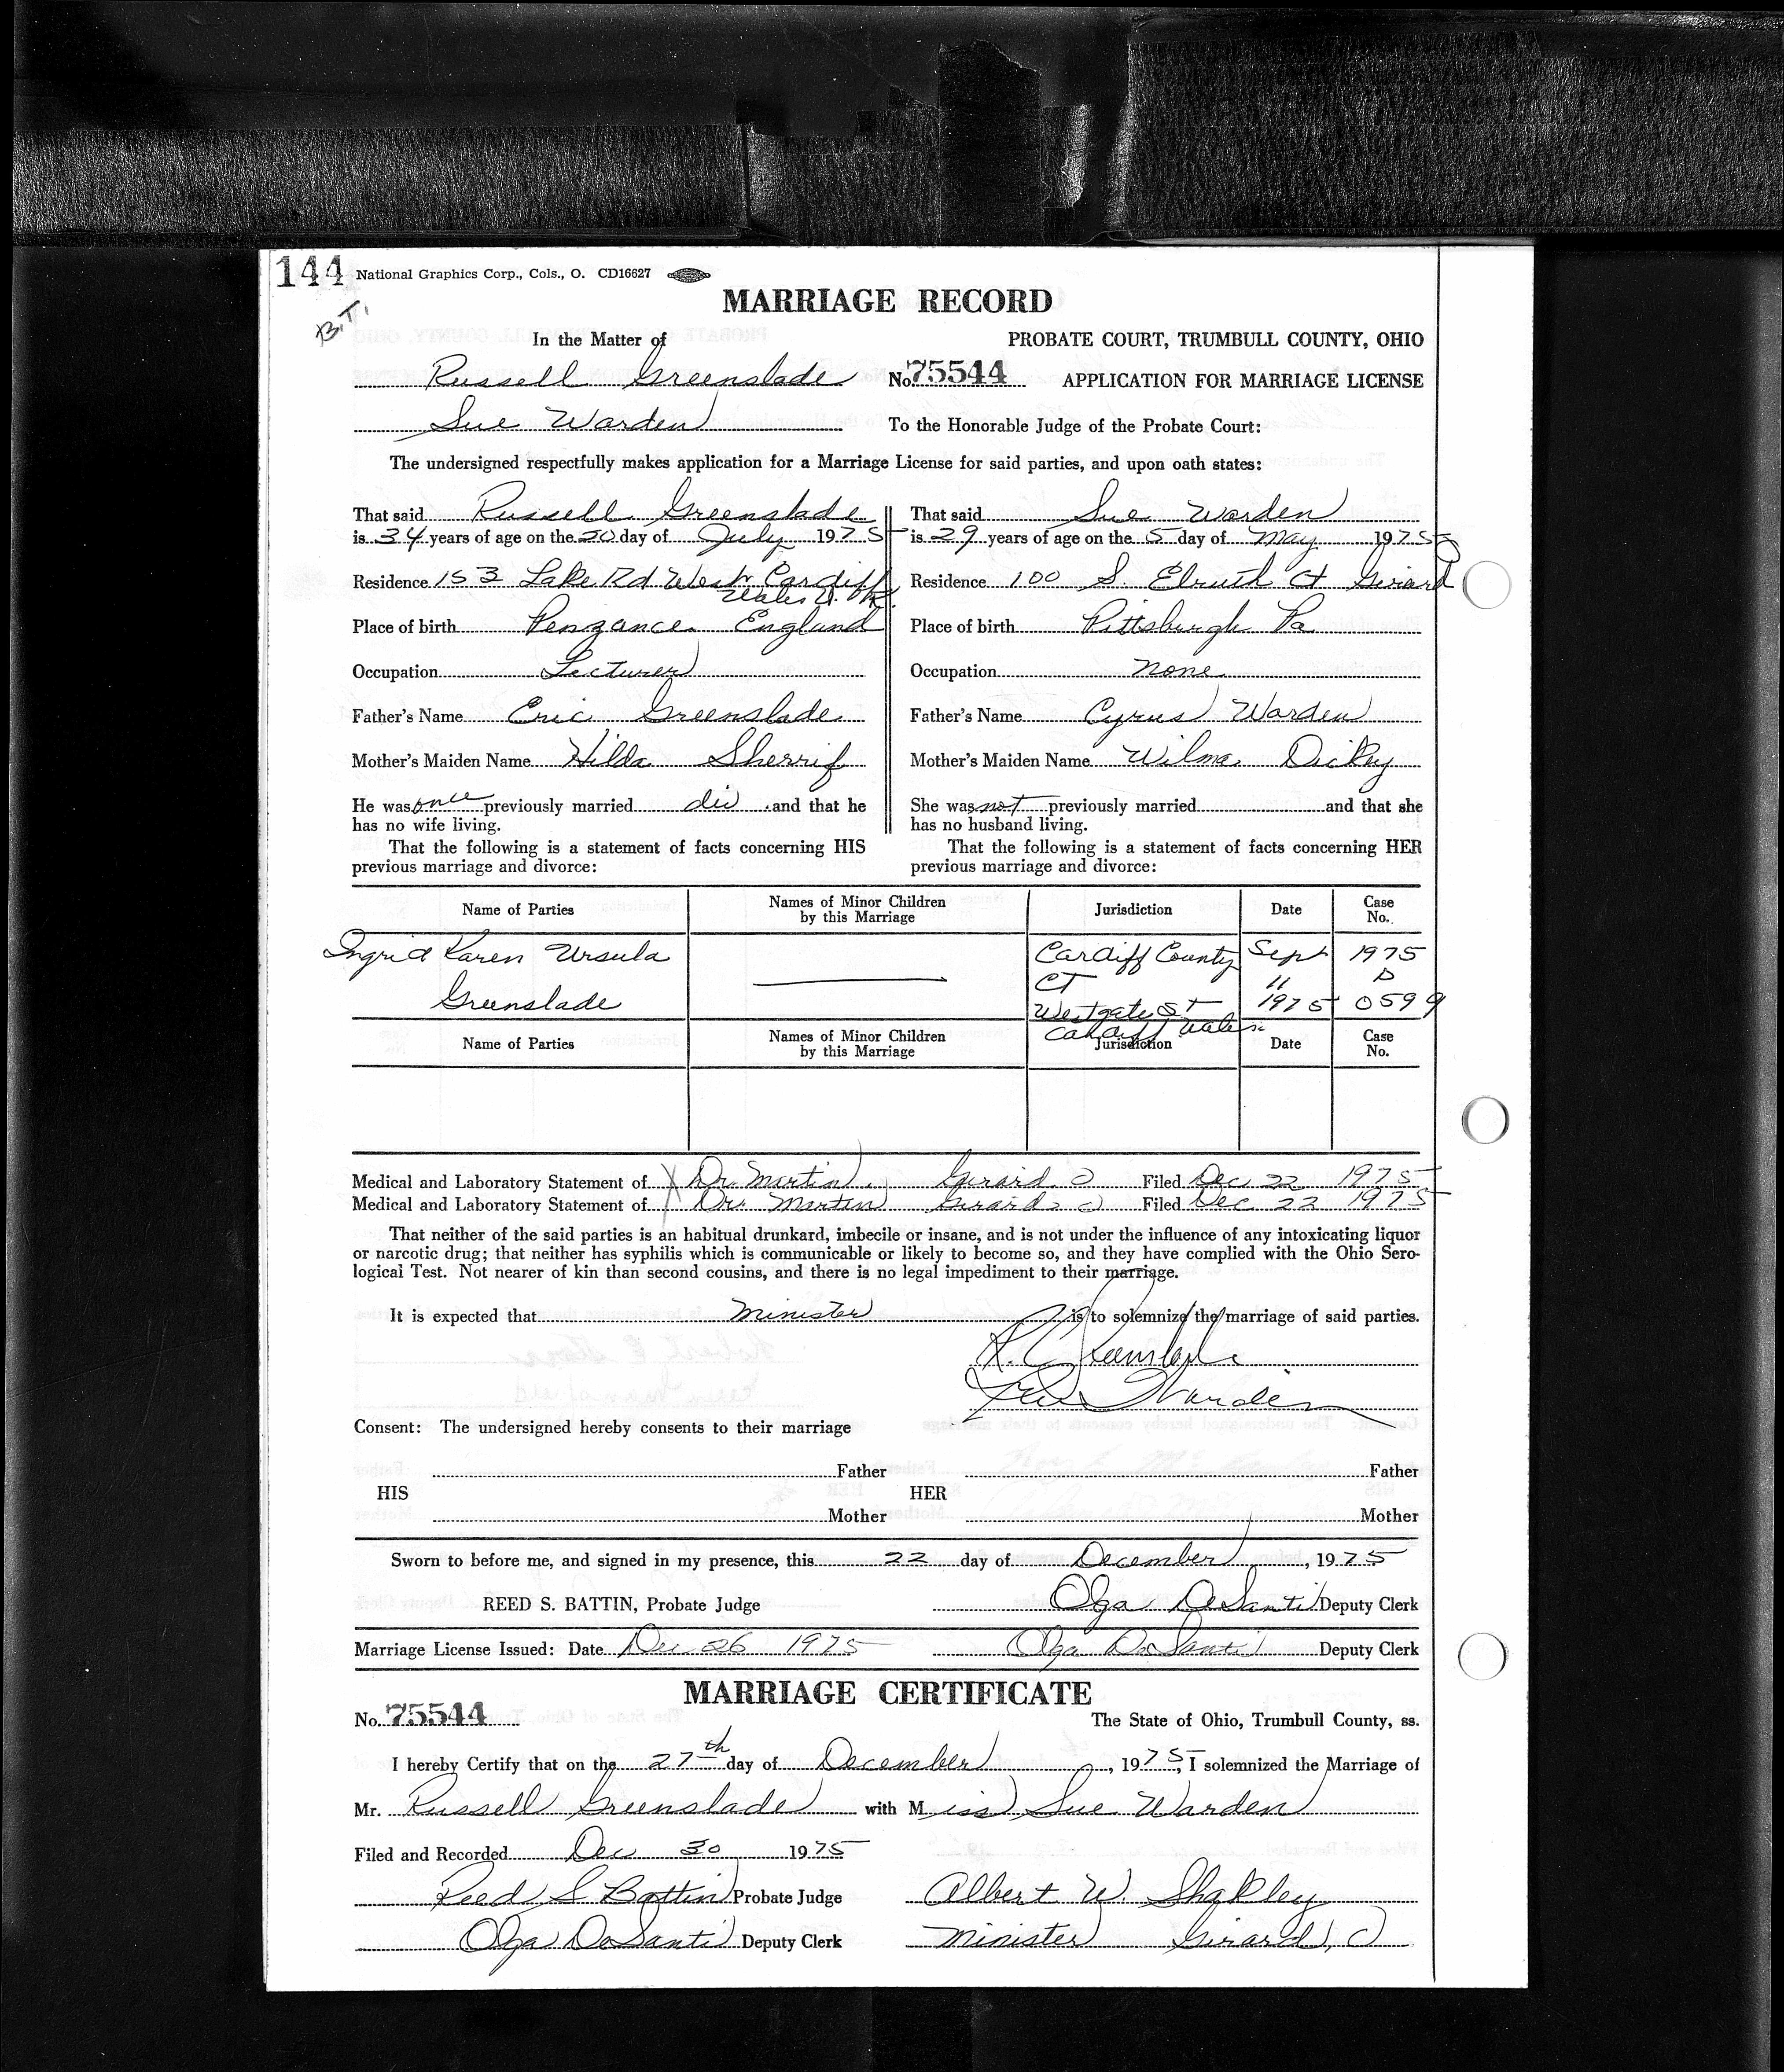 144 National Graphics Corp., Cols., O. CD16627
B.T.
MARRIAGE RECORD
In the Matter of PROBATE COURT, TRUMBULL COUNTY, OHIO
Russell Greenslade No. 75544 APPLICATION FOR MARRIAGE LICENSE
Sue Warden To the Honorable Judge of the Probate Court:
The undersigned respectfully makes application for a Marriage License for said parties, and upon oath states:
That said Russell Greenslade That said Sue Warden
is 34 years of age on the 20 day of July 1975 is 29 years of age on the 5 day of May 1975
Residence 153 Lake Rd West Cardiff Residence 100 S. Elruth Ct Girard
Wales U.K.
Place of birth Penzance England Place of birth Pittsburgh Pa
Occupation Lecturer Occupation none
Father's Name Eric Greenslade Father's Name Cyrus Warden
Mother's Maiden Name Hilda Sherrif Mother's Maiden Name Wilma Dickey
He was once previously married div and that he She was not previously married and that she
has no wife living. has no husband living.
That the following is a statement of facts concerning HIS That the following is a statement of facts concerning HER
previous marriage and divorce: previous marriage and divorce:
Name of Parties Names of Minor Children by this Marriage Jurisdiction Date Case No.
Ingrid Karen Ursula Cardiff County Sept 1975
CT 11 D
Greenslade Westgate St 1975 0599
Cardiff Wales
Name of Parties Names of Minor Children by this Marriage Jurisdiction Date Case No.
Medical and Laboratory Statement of Dr. Martin Girard O Filed Dec 22 1975
Medical and Laboratory Statement of Dr. Martin Girard, O Filed Dec 22 1975
That neither of the said parties is an habitual drunkard, imbecile or insane, and is not under the influence of any intoxicating liquor
or narcotic drug; that neither has syphilis which is communicable or likely to become so, and they have complied with the Ohio Sero-
logical Test. Not nearer of kin than second cousins, and there is no legal impediment to their marriage.
It is expected that minister is to solemnize the marriage of said parties.
R. Greenslade
Sue Warden
Consent: The undersigned hereby consents to their marriage
Father Father
HIS HER
Mother Mother
Sworn to before me, and signed in my presence, this 22 day of December, 1975
REED S. BATTIN, Probate Judge Olga DeSanti Deputy Clerk
Marriage License Issued: Date Dec 26 1975 Olga DeSanti Deputy Clerk
MARRIAGE CERTIFICATE
No. 75544 The State of Ohio, Trumbull County, ss.
I hereby Certify that on the 27th day of December, 1975, I solemnized the Marriage of
Mr. Russell Greenslade with Miss Sue Warden
Filed and Recorded Dec 30 1975
Reed S Battin Probate Judge Albert W. Shakley
Olga DeSanti Deputy Clerk Minister Girard, O